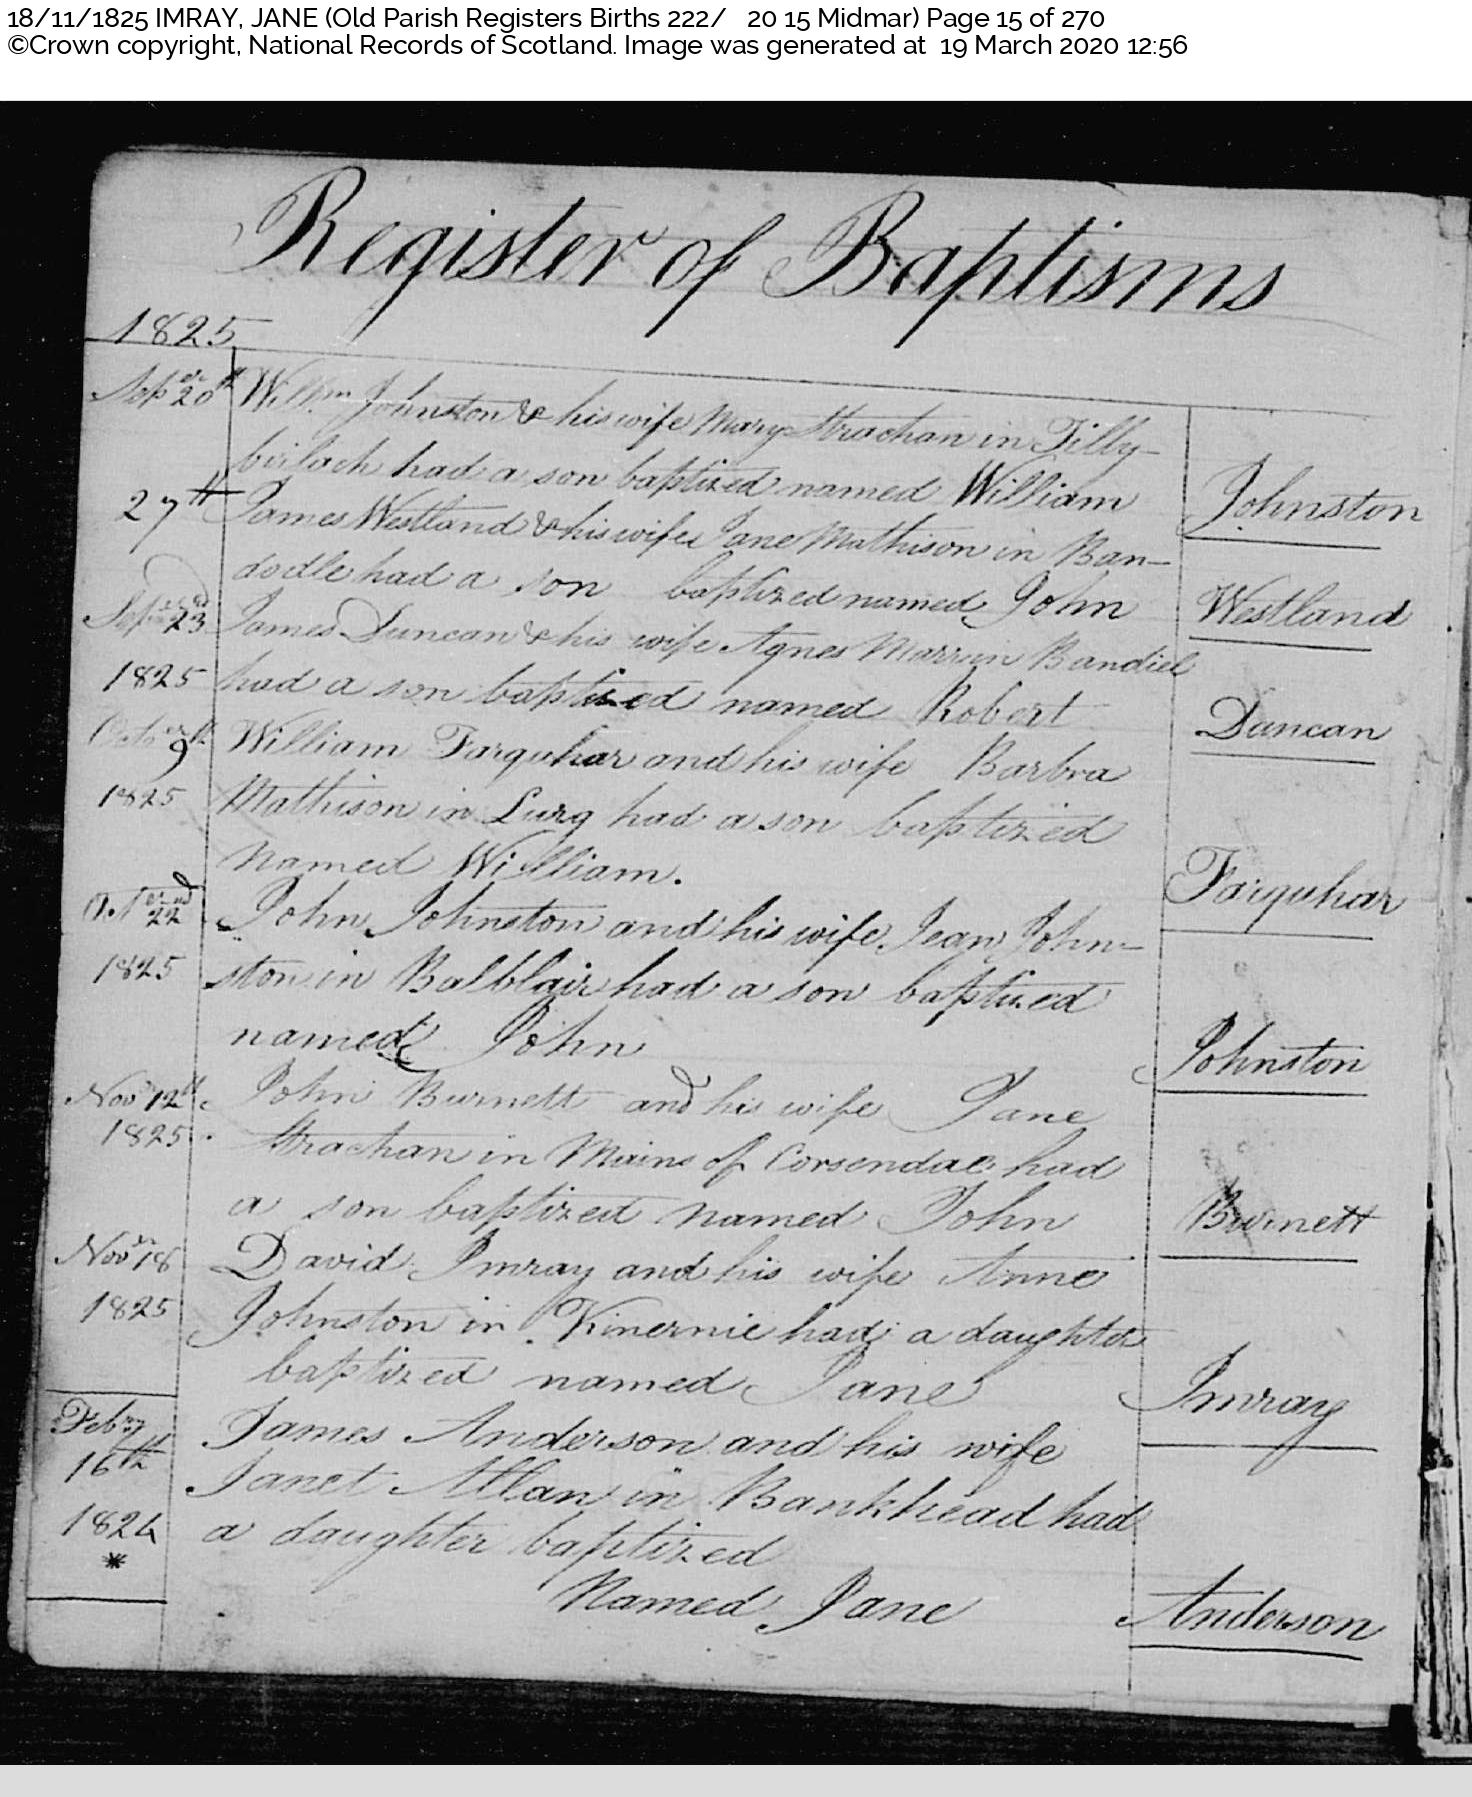 18/11/1825 IMRAY, JANE (Old Parish Registers Births 222/ 20 15 Midmar) Page 15 of 270
©Crown copyright, National Records of Scotland. Image was generated at 19 March 2020 12:56
Register of Baptisms
1825
Seper 20th Willm Johnston & his wife Mary Strachan in Tilly-
birloch had a son baptized named William Johnston
27th James Westland & his wife Jane Mathison in Ban-
dodle had a son baptized named John Westland
23 James Duncan & his wife Agnes Bandlel
1825 had a son baptized named Robert Duncan
9 William Farquhar and his wife Barbra
1825 Mathison in Lurg had a son baptized
named William. Farquhar
22 John Johnston and his wife Jean John-
1825 ston in Balblair had a son baptized
named John Johnston
Novr 12th John Burnett and his wife Jane
1825 Strachan in Mains of Corsendae had
a son baptized named John Burnett
Novr 18 David Imray and his wife Anne
1825 Johnston in Kinernie had a daughter
baptized named Jane Imray
Febry James Anderson and his wife
16th Janet Allan in Bankhead had
1824 a daughter baptized
*
Named Jane Anderson